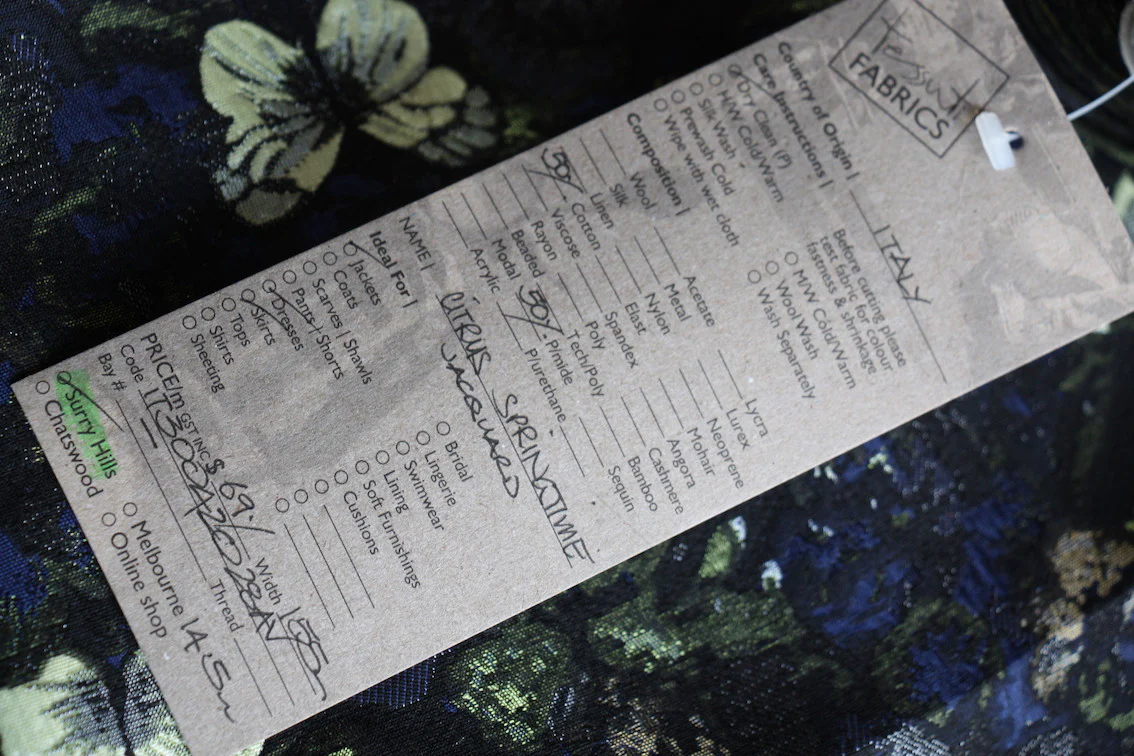 Tessuti
FABRICS
Country of Origin | ITALY
Care Instructions | Before cutting please
test fabric for colour
fastness & shrinkage
Dry Clean (P)
H/W Cold/Warm M/W Cold/Warm
Silk Wash Wool Wash
Prewash Cold Wash Separately
Wipe with wet cloth
Composition |
Wool Acetate Lycra
Silk Metal Lurex
Linen Nylon Neoprene
50% Cotton Elast Mohair
Viscose Spandex Angora
Rayon Poly Cashmere
Beaded Tech/Poly Bamboo
Modal 50% P/mide Sequin
Acrylic P/urethane
NAME | CITRUS SPRINGTIME
JACQUARD
Ideal For |
Jackets Bridal
Coats Lingerie
Scarves | Shawls Swimwear
Pants | Shorts Lining
Dresses Soft Furnishings
Skirts Cushions
Tops
Shirts
Sheeting
PRICE/m GST INC $69./ Width 155
Code
Bay # Thread
Surry Hills Melbourne 14.5m
Chatswood Online shop